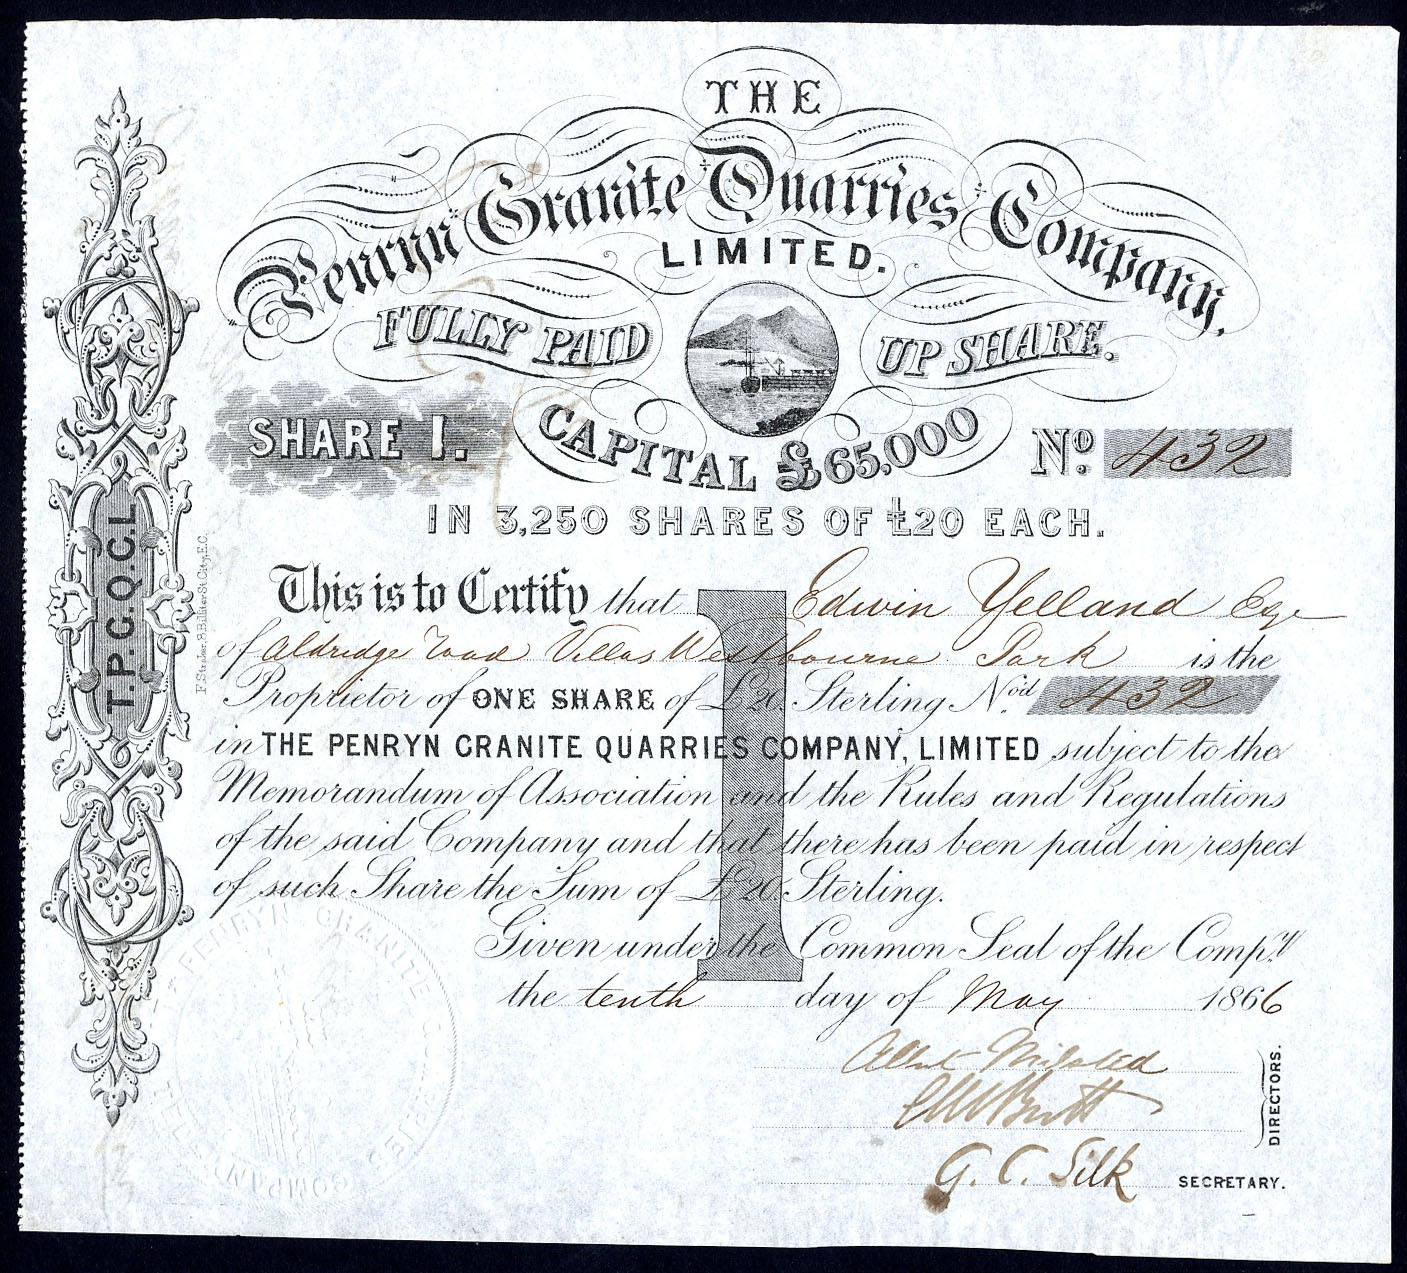 THE
Penryn Granite Quarries Company,
LIMITED.
FULLY PAID UP SHARE.
SHARE 1.
CAPITAL £65,000
No. 432
IN 3,250 SHARES OF £20 EACH.
This is to Certify that Edwin Yelland Esqe
of Aldridge Road Villas Westbourne Park is the
Proprietor of ONE SHARE of £20 Sterling No'd 432
in THE PENRYN GRANITE QUARRIES COMPANY, LIMITED subject to the
Memorandum of Association and the Rules and Regulations
of the said Company and that there has been paid in respect
of such Share the Sum of £20 Sterling.
Given under the Common Seal of the Compy.
the tenth day of May 1866
Albert
G. C. Silk SECRETARY.
DIRECTORS.
1
T.P.G.Q.C.L
F. Straker, 8 Billiter St. City, E.C.
PENRYN GRANITE
COMPANY